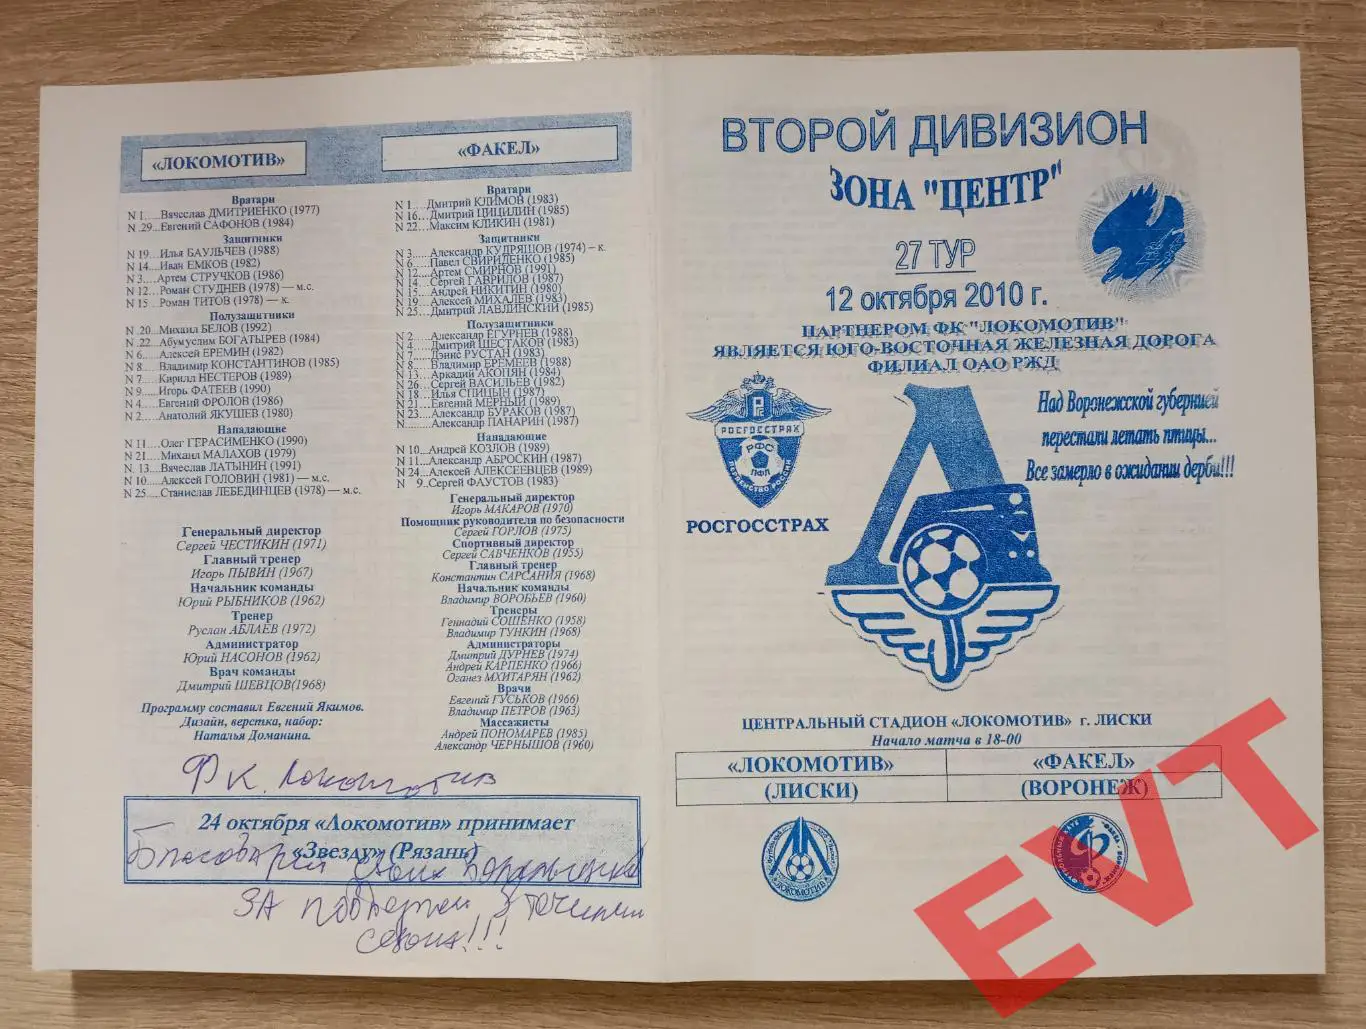 «ЛОКОМОТИВ»
Вратари
N 1.....Вячеслав ДМИТРИЕНКО (1977)
N .29...Евгений САФОНОВ (1984)
Защитники
N 19....Илья БАУЛЬЧЕВ (1988)
N 14....Иван ЕМКОВ (1982)
N 3.....Артем СТРУЧКОВ (1986)
N 12....Роман СТУДНЕВ (1978) — м.с.
N 15....Роман ТИТОВ (1978) — к.
Полузащитники
N .20...Михаил БЕЛОВ (1992)
N .22...Абумуслим БОГАТЫРЕВ (1984)
N 6.....Алексей ЕРЕМИН (1982)
N 8.....Владимир КОНСТАНТИНОВ (1985)
N 7.....Кирилл НЕСТЕРОВ (1989)
N 9.....Игорь ФАТЕЕВ (1990)
N 4.....Евгений ФРОЛОВ (1986)
N 2.....Анатолий ЯКУШЕВ (1980)
Нападающие
N 11....Олег ГЕРАСИМЕНКО (1990)
N 21....Михаил МАЛАХОВ (1979)
N. 13...Вячеслав ЛАТЫНИН (1991)
N 10....Алексей ГОЛОВИН (1981) — м.с.
N 25....Станислав ЛЕБЕДИНЦЕВ (1978) — м.с.
Генеральный директор
Сергей ЧЕСТИКИН (1971)
Главный тренер
Игорь ПЫВИН (1967)
Начальник команды
Юрий РЫБНИКОВ (1962)
Тренер
Руслан АБЛАЕВ (1972)
Администратор
Юрий НАСОНОВ (1962)
Врач команды
Дмитрий ШЕВЦОВ(1968)
Программу составил Евгений Якимов.
Дизайн, верстка, набор:
Наталья Доманина.
«ФАКЕЛ»
Вратари
N 1.....Дмитрий КЛИМОВ (1983)
N 16....Дмитрий ЦИЦИЛИН (1985)
N 22....Максим КЛИКИН (1981)
Защитники
N 3.....Александр КУДРЯШОВ (1974) – к.
N 6.....Павел СВИРИДЕНКО (1985)
N 12....Артем СМИРНОВ (1991)
N 14....Сергей ГАВРИЛОВ (1987)
N 15....Андрей НИКИТИН (1980)
N 19....Алексей МИХАЛЕВ (1983)
N 25....Дмитрий ЛАВЛИНСКИЙ (1985)
Полузащитники
N 2.....Александр ЕГУРНЕВ (1988)
N 4.....Дмитрий ШЕСТАКОВ (1983)
N 7.....Дэнис РУСТАН (1983)
N 8.....Владимир ЕРЕМЕЕВ (1988)
N 13....Аркадий АКОПЯН (1984)
N 26....Сергей ВАСИЛЬЕВ (1982)
N 18....Илья СПИЦЫН (1987)
N 21....Евгений МЕРНЫЙ (1989)
N 23....Александр БУРАКОВ (1987)
N.......Александр ПАНАРИН (1987)
Нападающие
N 10....Андрей КОЗЛОВ (1989)
N 11....Александр АБРОСКИН (1987)
N 24....Алексей АЛЕКСЕЕВЦЕВ (1989)
N 9..Сергей ФАУСТОВ (1983)
Генеральный директор
Игорь МАКАРОВ (1970)
Помощник руководителя по безопасности
Сергей ГОРЛОВ (1975)
Спортивный директор
Сергей САВЧЕНКОВ (1955)
Главный тренер
Константин САРСАНИЯ (1968)
Начальник команды
Владимир ВОРОБЬЕВ (1960)
Тренеры
Геннадий СОШЕНКО (1958)
Владимир ТУНКИН (1968)
Администраторы
Дмитрий ДУРНЕВ (1974)
Андрей КАРПЕНКО (1966)
Оганез МХИТАРЯН (1962)
Врачи
Евгений ГУСЬКОВ (1966)
Владимир ПЕТРОВ (1963)
Массажисты
Андрей ПОНОМАРЕВ (1985)
Александр ЧЕРНЫШОВ (1960)
ФК. Локомотив
24 октября «Локомотив» принимает
«Звезду» (Рязань)
Благодарит своих болельщиков
за поддержку в течении
сезона!!!
ВТОРОЙ ДИВИЗИОН
ЗОНА "ЦЕНТР"
27 ТУР
12 октября 2010 г.
ПАРТНЕРОМ ФК "ЛОКОМОТИВ"
ЯВЛЯЕТСЯ ЮГО-ВОСТОЧНАЯ ЖЕЛЕЗНАЯ ДОРОГА
ФИЛИАЛ ОАО РЖД
Над Воронежсской губернией
перестали летать птицы...
Все замерло в ожидании дерби!!!
РОСГОССТРАХ
РФС
ПФЛ
РОСГОССТРАХ
ЦЕНТРАЛЬНЫЙ СТАДИОН «ЛОКОМОТИВ» г. ЛИСКИ
Начало матча в 18-00
«ЛОКОМОТИВ» «ФАКЕЛ»
(ЛИСКИ) (ВОРОНЕЖ)
ЛОКОМОТИВ
EVT